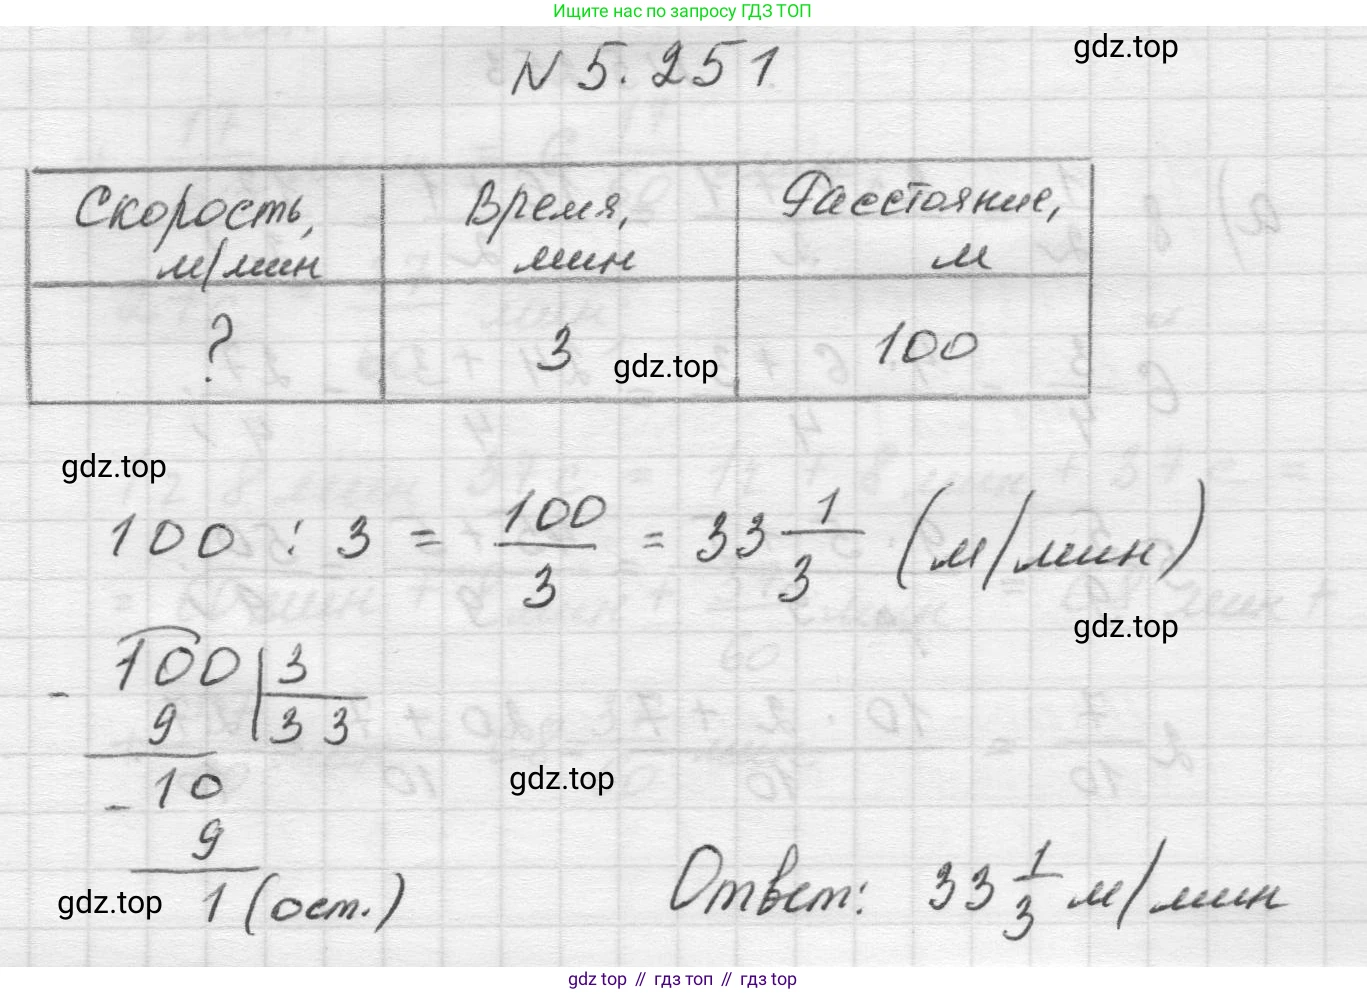 Ищите нас по запросу ГДЗ ТОП
gdz.top
N 5.251
Скорость, м/мин
Время, мин
Расстояние, м
?
3
100
gdz.top
gdz.top
100 : 3 = 100/3 = 33 1/3 (м/мин)
gdz.top
- 100 | 3
9 33
- 10
9
1 (ост.)
gdz.top
gdz.top
Ответ: 33 1/3 м/мин
gdz top // гдз топ // гдз top